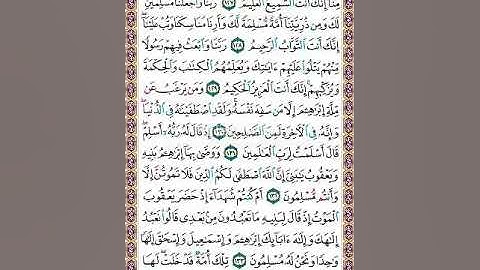 مِنَّآ إِنَّكَ أَنتَ ٱلسَّمِيعُ ٱلْعَلِيمُ ١٢٧ رَبَّنَا وَٱجْعَلْنَا مُسْلِمَيْنِ
لَكَ وَمِن ذُرِّيَّتِنَآ أُمَّةً مُّسْلِمَةً لَّكَ وَأَرِنَا مَنَاسِكَنَا وَتُبْ عَلَيْنَآ
إِنَّكَ أَنتَ ٱلتَّوَّابُ ٱلرَّحِيمُ ١٢٨ رَبَّنَا وَٱبْعَثْ فِيهِمْ رَسُولًا
مِّنْهُمْ يَتْلُوا۟ عَلَيْهِمْ ءَايَٰتِكَ وَيُعَلِّمُهُمُ ٱلْكِتَٰبَ وَٱلْحِكْمَةَ
وَيُزَكِّيهِمْ إِنَّكَ أَنتَ ٱلْعَزِيزُ ٱلْحَكِيمُ ١٢٩ وَمَن يَرْغَبُ عَن
مِّلَّةِ إِبْرَٰهِۦمَ إِلَّا مَن سَفِهَ نَفْسَهُۥ وَلَقَدِ ٱصْطَفَيْنَٰهُ فِى ٱلدُّنْيَا
وَإِنَّهُۥ فِى ٱلْءَاخِرَةِ لَمِنَ ٱلصَّٰلِحِينَ ١٣٠ إِذْ قَالَ لَهُۥ رَبُّهُۥٓ أَسْلِمْ
قَالَ أَسْلَمْتُ لِرَبِّ ٱلْعَٰلَمِينَ ١٣١ وَوَصَّىٰ بِهَآ إِبْرَٰهِۦمُ بَنِيهِ
وَيَعْقُوبُ يَٰبَنِىَّ إِنَّ ٱللَّهَ ٱصْطَفَىٰ لَكُمُ ٱلدِّينَ فَلَا تَمُوتُنَّ إِلَّا
وَأَنتُم مُّسْلِمُونَ ١٣٢ أَمْ كُنتُمْ شُهَدَآءَ إِذْ حَضَرَ يَعْقُوبَ
ٱلْمَوْتُ إِذْ قَالَ لِبَنِيهِ مَا تَعْبُدُونَ مِنۢ بَعْدِى قَالُوا۟ نَعْبُدُ
إِلَٰهَكَ وَإِلَٰهَ ءَابَآئِكَ إِبْرَٰهِۦمَ وَإِسْمَٰعِيلَ وَإِسْحَٰقَ إِلَٰهًا
وَٰحِدًا وَنَحْنُ لَهُۥ مُسْلِمُونَ ١٣٣ تِلْكَ أُمَّةٌ قَدْ خَلَتْ لَهَا